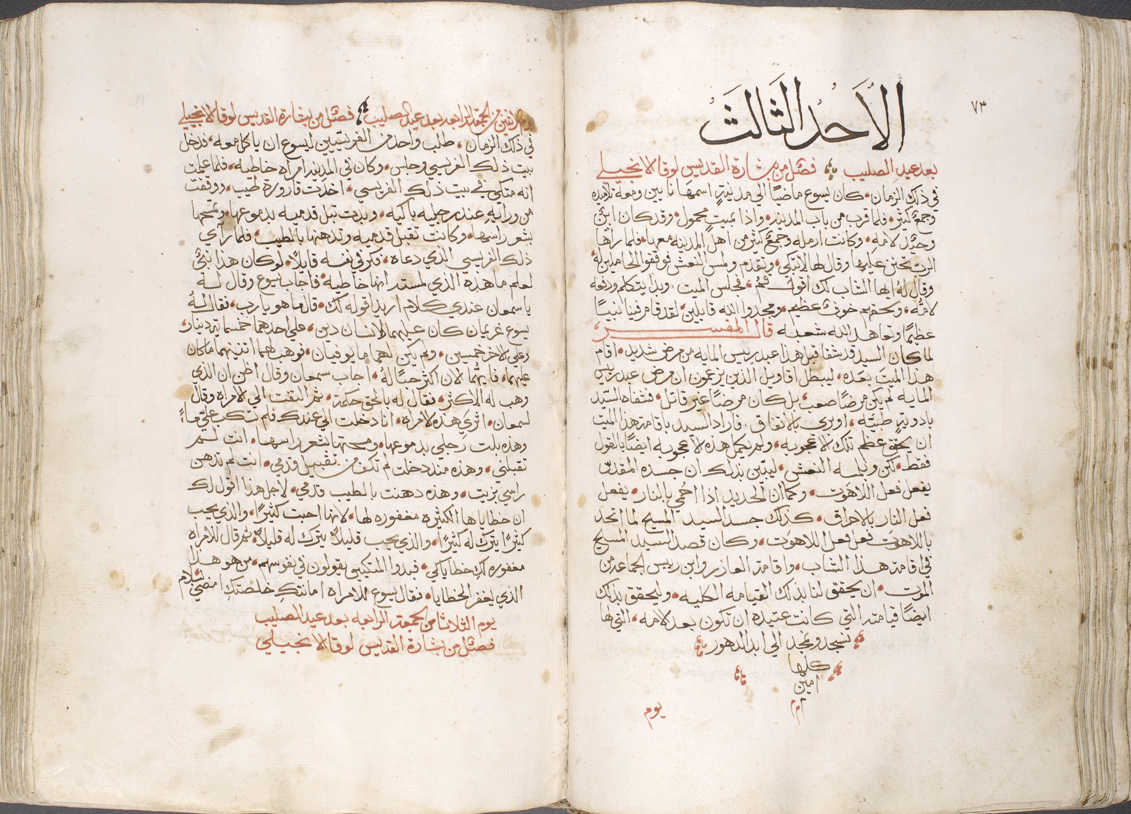 ٧٣
الاَحَدُ الثالث
بعد عيد الصليب فصل من بشارة القديس لوقا الانجيلي
في ذلك الزمان كان يسوع ماضيًا الي مدينة اسمها نايين ومعه تلاميذه
وجمع كثير فلما قرب من باب المدينه واذا بميت محمول وقد كان ابن
وحيد لامه وكانت ارمله وجمع كثير من اهل المدينه معها فلما راها
الرب تحنن عليها وقال لها لا تبكي وتقدم ولمس النعش فوقفو الحاملين له
وقال له ايها الشاب لك اقول قم فجلس الميت وبدا يتكلم ودفعه
لامه وبحضهم خوف عظيم ومجدوا الله قايلين لقد قام فينا نبيًا
عظيمًا وتعاهد الله شعبه قال المفسر
لما كان السيد قد شفا قبل هذا عبد رييس المايه من مرض شديد اقام
هذا الميت بعده ليبطل اقاويل الذين يزعمون ان مرض عبد رييس
المايه لم يكن مرضًا صعب بل كان مرضًا غير قاتل فشفاه السيد
بادويه طبيه اوبري بالاتفاق فاراد السيد باقامة هذا الميت
ان يحقق عظم تلك الاعجوبه ولم يكمل هذه الاعجوبه ايضًا بالقول
فقط لكن ولمسه النعش ليبين بذلك ان جسده المقدس
يفعل فعل اللاهوت وكما ان الحديد اذا احمي بالنار يفعل
فعل النار بالاحراق كذلك جسد السيد المسيح لما اتحد
باللاهوت فعل فعل اللاهوت وكان قصد السيد المسيح
في اقامة هذا الشاب واقامة العازر وابن رييس الجماعه من
الموت ان يحقق لنا بذلك القيامه الكليه وليحقق بذلك
ايضًا قيامته التي كانت عتيده ان تكون بعد الامه التي لها
نسجد ونمجد الي ابد الدهور
كلها
امين
يوم
الاثنين من الجمعه الرابعه بعد عيد الصليب فصل من بشارة القديس لوقا الانجيلي
في ذلك الزمان طلب واحد من الفريسيين ليسوع ان ياكل معه فدخل
بيت ذلك الفريسي وجلس وكان في المدينه امراه خاطيه فلما علمت
انه متكي في بيت ذلك الفريسي اخذت قارورة طيب ووقفت
من ورايه عند رجليه باكيه وبدت تبل قدميه بدموعها وتمسحها
بشعر راسها وكانت تقبل قدميه وتدهنها بالطيب فلما راي
ذلك الفريسي الذي دعاه فكر في نفسه قايلاً لو كان هذا نبيُ
لعلم ما هذه الذي لمسته انها خاطيه فاجاب يسوع وقال له
يا سمعان عندي كلام اريد اقوله لك قال ما هو يا رب فقال له
يسوع غريمان كان عليهما لانسان دين علي احدهما خمسمايه دينار
وعلي الاخر خمسين ولم يكن لهما ما يوفيان فوهب لهما اتنيهما ما كان
عليهما فايهما الان اكثر حبًا له اجاب سمعان وقال اظن ان الذي
وهب له الاكثر فقال له بالحق حكمت ثم التفت الي الامراه وقال
لسمعان اتري هذه الامراه انا دخلت الي عندك فلم تسكب علي ماءً
وهذه بلت رجلي بدموعها ومسحتها بشعر راسها انت لم
تقبلني وهذه منذ دخلت لم تكف من تقبيل قدمي انت لم تدهن
راسي بزيت وهذه دهنت بالطيب قدمي لاجل هذا اقول لك
ان خطاياها الكثيره مغفوره لها لانها احبت كثيرًا والذي يحب
كثيرًا يترك له كثيرًا والذي يحب قليلاً يترك له قليلاً ثم قال للامراه
مغفوره لك خطاياكي فبدوا المتكيين يقولون في نفوسهم من هو هذا
الذي يغفر الخطايا فقال يسوع للامراه امانتك خلصتك امضي بسلام
يوم الثلاثا من الجمعه الرابعه بعد عيد الصليب
فصل من بشارة القديس لوقا الانجيلي